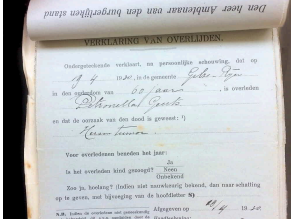 Den heer Ambtenaar van den burgerlijken stand
VERKLARING VAN OVERLIJDEN.
Ondergeteekende verklaart, na persoonlijke schouwing, dat op
19 4 1920, in de gemeente
in den ouderdom van 60 jaar, is overleden
Petronella Geerts
en dat de oorzaak van den dood is geweest: ¹)
Hersentumor
Voor overledenen beneden het jaar:
Ja
Is het overleden kind gezoogd? Neen
Onbekend
Zoo ja, hoelang? (Indien nauwkeurig bekend, dan naar schatting
op te geven, met bijvoeging van de hoofdletter S)
N.B. Indien de overledene
Afgegeven op 19/4 1920